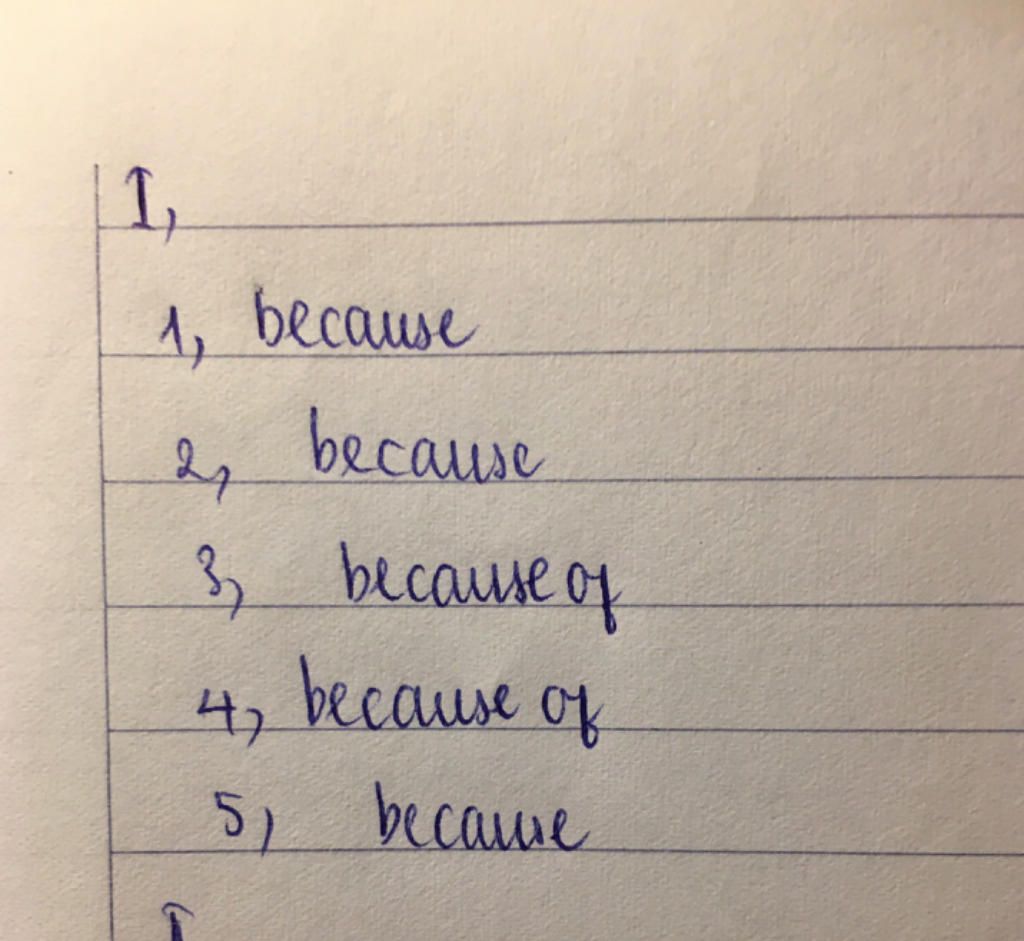 I,
1, because
2, because
3, because of
4, because of
5, because